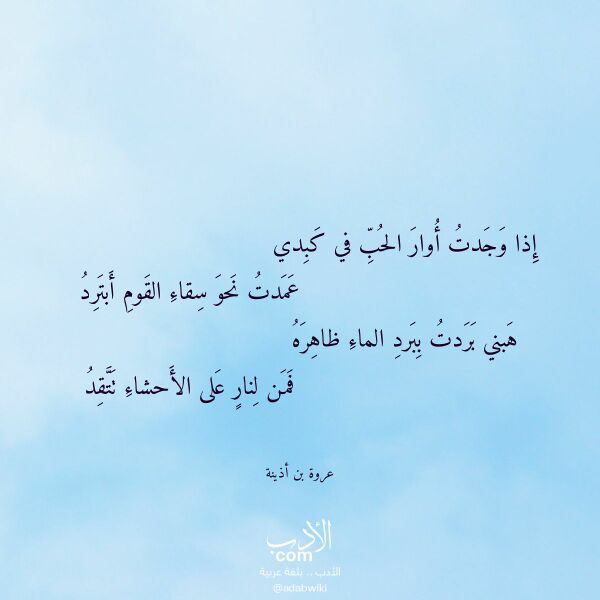 إِذا وَجَدتُ أُوارَ الحُبِّ في كَبِدي
عَمَدتُ نَحوَ سِقاءِ القَومِ أَبتَرِدُ
هَبني بَرَدتُ بِبَردِ الماءِ ظاهِرَهُ
فَمَن لِنارٍ عَلى الأَحشاءِ تَتَّقِدُ
عروة بن أذينة
الأدب
com
الأدب .. بلغة عربية
@adabwiki